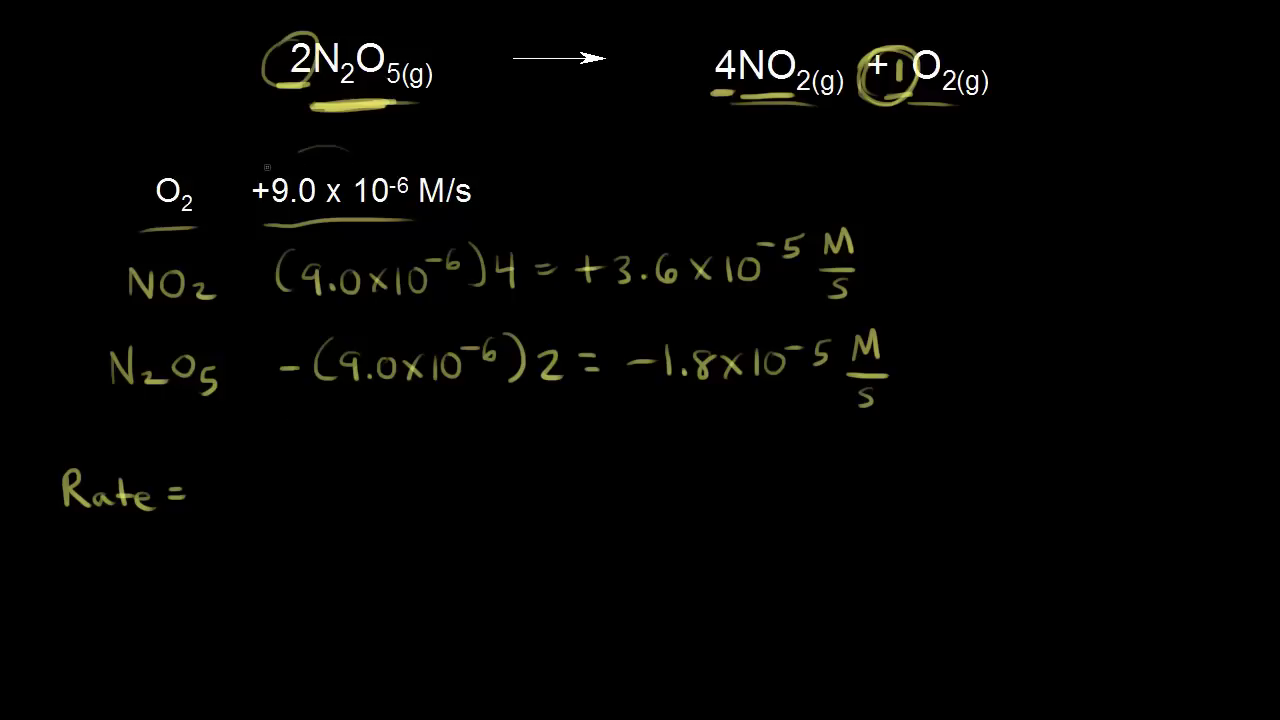 2N₂O₅(g) → 4NO₂(g) + 1 O₂(g)
O₂ +9.0 x 10⁻⁶ M/s
NO₂ (9.0x10⁻⁶)4 = +3.6x10⁻⁵ M/s
N₂O₅ -(9.0x10⁻⁶)2 = -1.8x10⁻⁵ M/s
Rate =